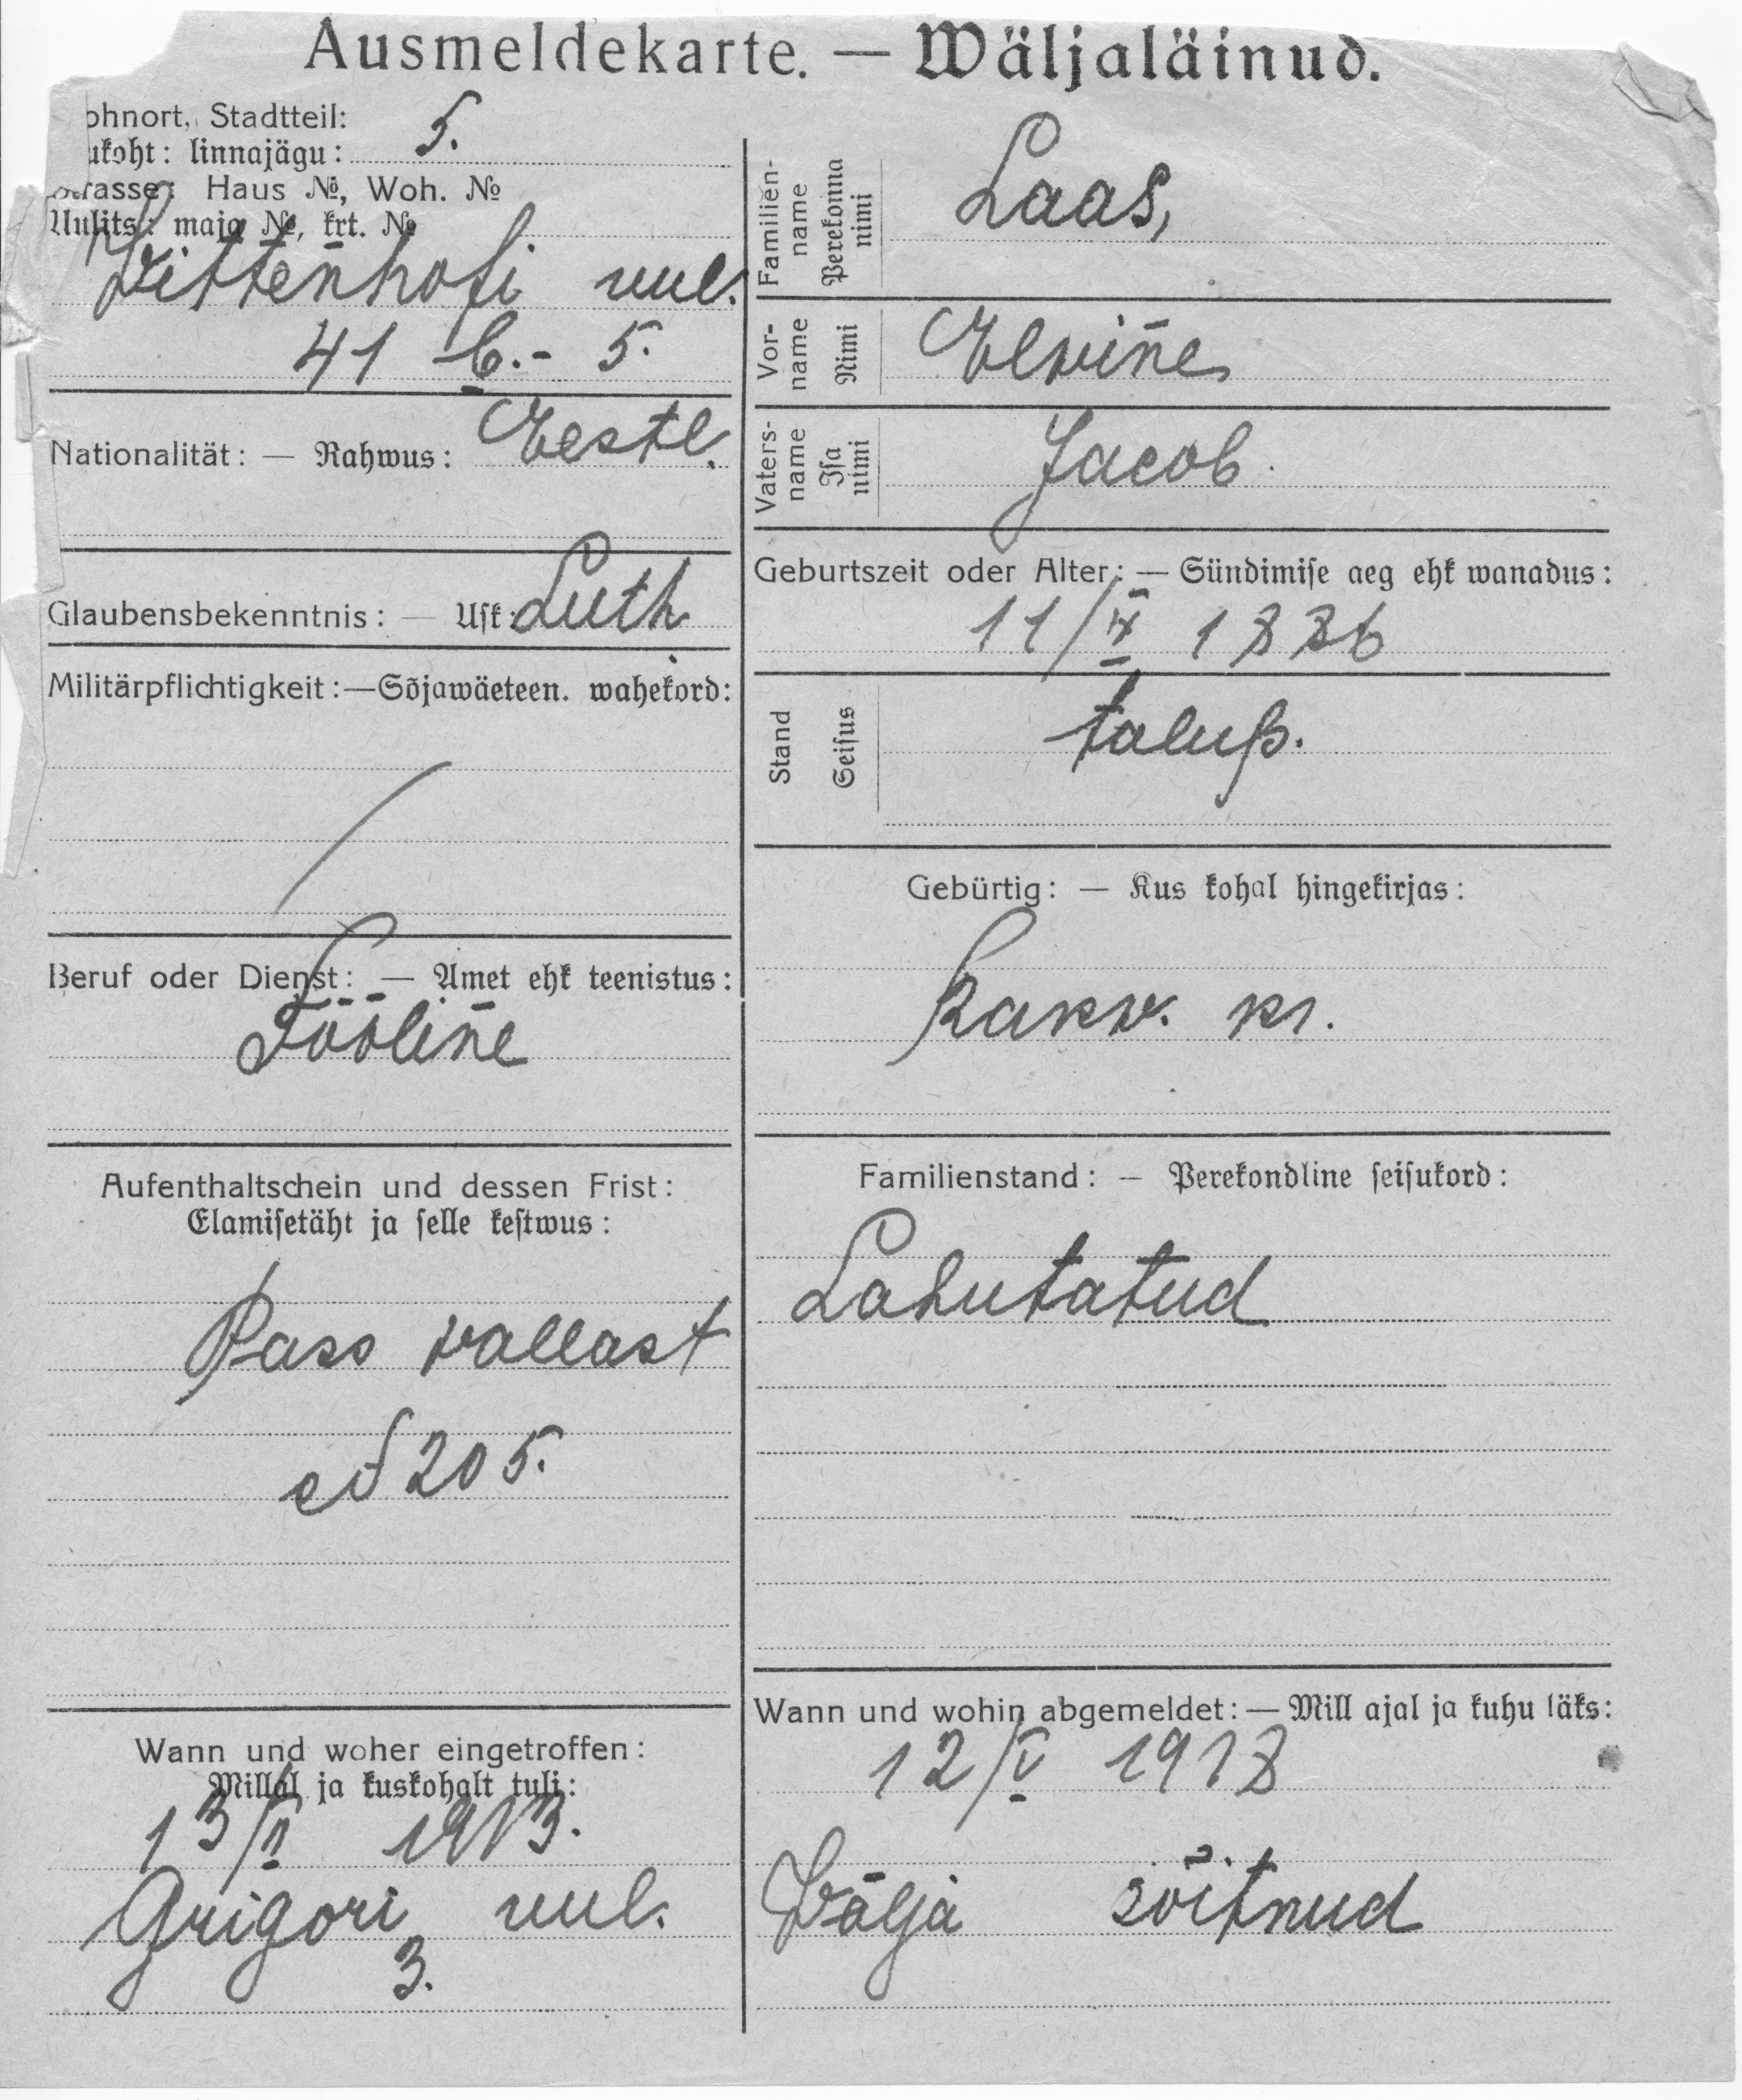 Ausmeldekarte. — Wäljaläinud.
ohnort, Stadtteil:
ukoht: linnajägu: 5.
Strasse: Haus №, Woh. №
Uulits: maja №, krt. №
Wittenhofi uul.
41 b.- 5.
Nationalität: — Rahwus: Eestl.
Glaubensbekenntnis: — Usk: Luth
Militärpflichtigkeit:—Sõjawäeteen. wahekord:
Beruf oder Dienst: — Amet ehk teenistus:
Tööline
Aufenthaltschein und dessen Frist:
Elamisetäht ja selle kestwus:
Pass vallast
205.
Wann und woher eingetroffen:
Millal ja kuskohalt tuli:
13/II 1913.
Grigori uul.
3.
Familien-
name
Perekonna
nimi
Laas,
Vor-
name
Nimi
Elvine
Vaters-
name
Isa
nimi
Jacob
Geburtszeit oder Alter: — Sündimise aeg ehk wanadus:
11/IX 1886
Stand
Seisus
talup.
Gebürtig: — Kus kohal hingekirjas:
Rakv. kr.
Familienstand: — Perekondline seisukord:
Lahutatud
Wann und wohin abgemeldet: — Mill ajal ja kuhu läks:
12/V 1918
Välja sõitnud